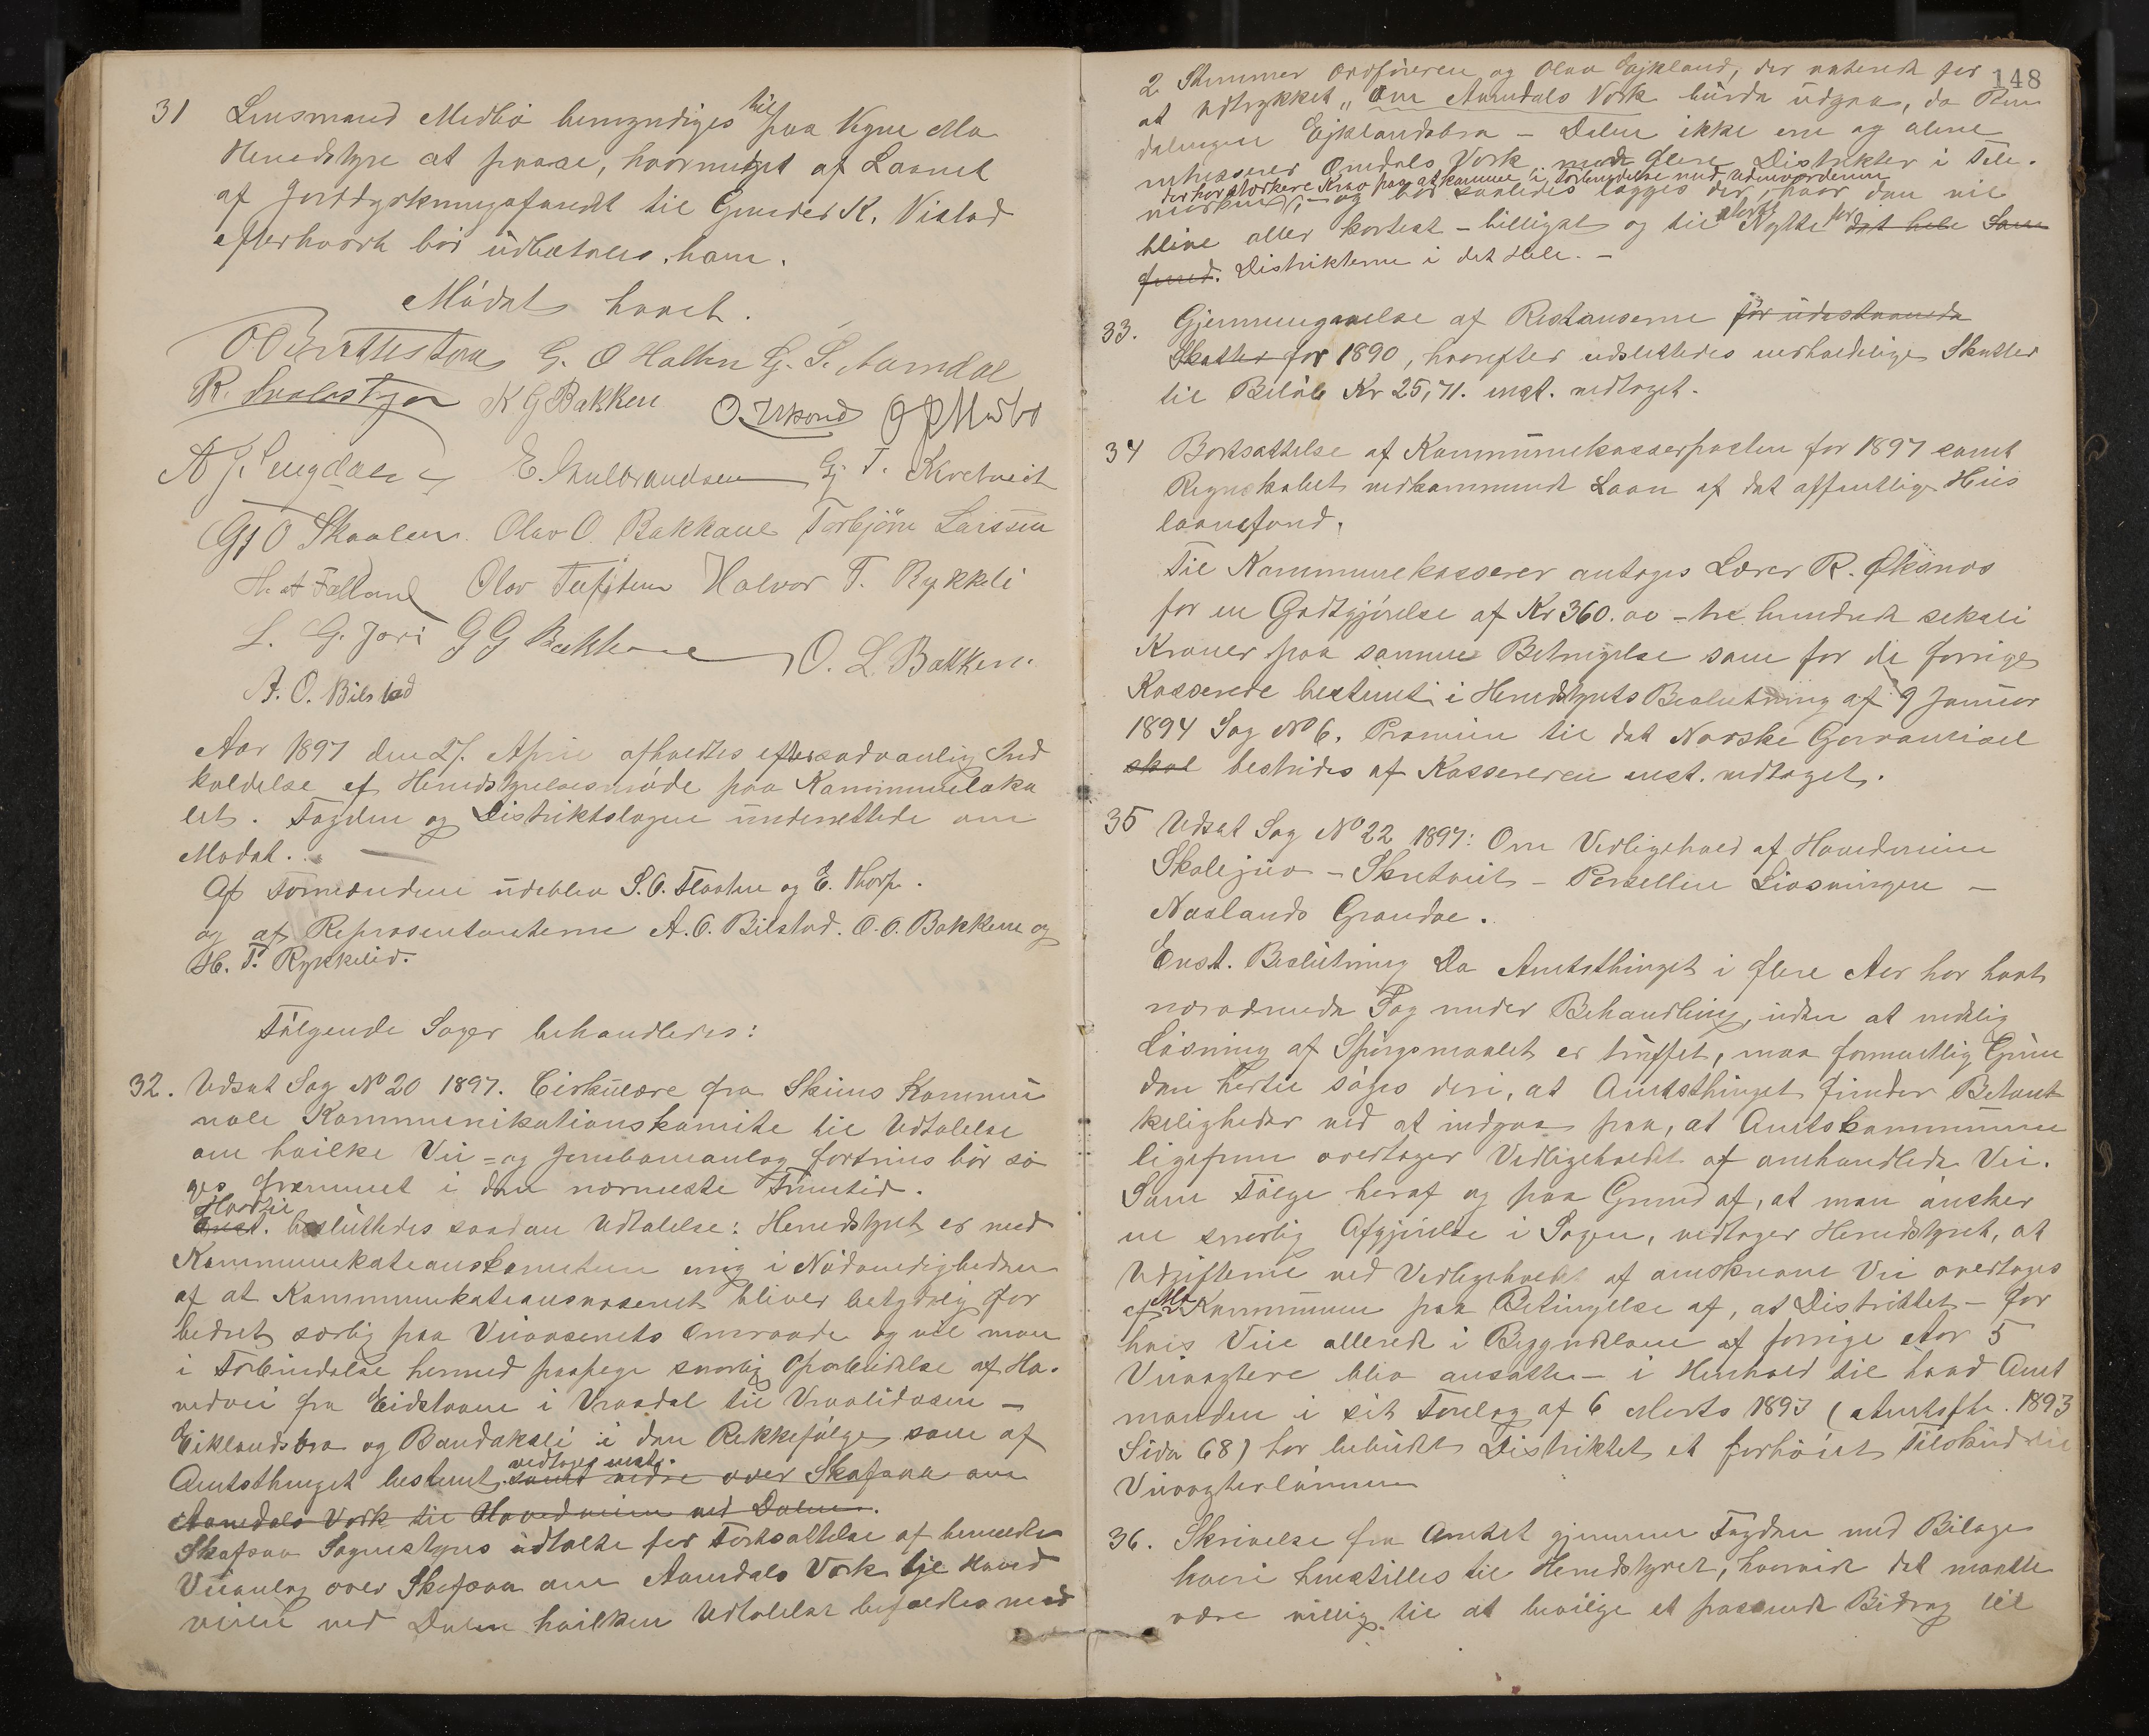 31 Lensmand Medbö bemyndiges til paa Vegne Mo
Heredstyre at paase, hvormeget af Laanet
af Jorddyrkningsfondet til Gunder K. Vistad
efterhvert bör udbetales ham.
Mödet hævet.
G. O Halten G. S. Aamdal
K G Bakken
G. T. Skretveit
Gj O Skaalen. Olav O. Bakkane Torbjörn Larssen
H. A Felland Olav Halvor T. Rykkeli
L. G. Jori G G Bakken O. L. Bakken.
A. O. Bilstad
Aar 1897 den 27. April afholdtes efter sædvanlig Ind
kaldelse af Heredstyrelsesmöde paa Kommuneloka
let. Fogden og Distriktslægen underrettede om
Mödet.
Af Formændene udeblev S. O. Flaaten og E. Thorp.
og af Repræsentanterne A. O. Bilstad. O. O. Bakken og
H. T. Rykkelid.
Fölgende Sager behandledes:
32. Udsat Sag No 20 1897. Cirkulære fra Skiens Kommu
nale Kommunikationskomite til Udtalelse
om hvilke Vei = og Jernbaneanlæg fortrins bör sö
ges fremmet i den nærmeste Fremtid.
Hertil
Enst. besluttedes saadan Udtalelse: Heredstyret er med
Kommunikationskomiteen enig i Nödvendigheden
af at Kommunikationsvæsenet bliver betydelig for
bedret særlig paa Veivæsenets Omraade og vil man
i Forbindelse hermed paapege snarlig Oparbeidelse af Ho-
vedvei fra Eidstovne i Vraadal til Vraaliosen –
Eiklandsbra og Bandaksli i den Rekkefölge som af
vedtages enst.
Amtsthinget bestemt samt videre over Skafsaa om
Aamdals Værk til Hovedveien ved Dalen.
Skafsaa Sognestyres udtalte for Fortsættelse af bemeldte
Veianlæg over Skafsaa om Aamdals Værk til Hoved
veien ved Dalen hvilken Udtalelse befaltes med
148
2 Stemmer Ordföreren og Olav Eikland, der voterede for
at Udtrykket „Om Aamdals Værk burde udgaa, da Rin
dalingen Eiklandsbra – Dalen ikke ene og alene
interesserer Omdals Værk, med flere Distrikter i Tele-
der har stærkere Krav paa at komme i Forbindelse med Udenverdenen
marken, – og bör saaledes lægges der, hvor den vil
störst for
blive aller kortest – billigst og til Nytte det hele Sam
fund. Distrikterne i det Hele. –
33. Gjennemgaaelse af Restanserne for udestaaende
Skatter for 1890, hvorefter udslettedes uerholdelige Skatter
til Beløb Kr 25,71. enst. vedtaget.
34 Bortsættelse af Kommunekasserposten for 1897 samt
Regnskabet vedkommende Laan af det offentlige Huis
laanefond.
Til Kommunekasserer antages Lærer R. Öksnes
for en Godtgjörelse af Kr 360.00 – tre hundrede seksti
Kroner paa samme Betingelse som for de forrige
Kasserere bestemt i Heredstyrets Beslutning af 9 Januar
1894 Sag No 6. Præmien til det Norske Garantisel
skal bestrides af Kassereren enst. vedtaget.
35 Udsat Sag No 22 1897: Om Vedligehold af Hovedveien
Skalejuv – Skretveit – Persellen Liosvingen –
Naslands Grændse.
Enst. Beslutning Da Amtsthinget i flere Aar har havt
nærværende Sag under Behandling, uden at endelig
Lösning af Spörgsmaalet er truffet, maa formentlig Grun
den hertil söges deri, at Amtsthinget finder Betænk
keligheder ved at indgaa paa, at Amtskommunen
ligefrem overtager Vedligeholdet af omhandlede Vei.
Som Fölge heraf og paa Grund af, at man önsker
en snarlig Afgjörelse i Sagen, vedtager Heredstyret, at
Udgifterne ved Vedligeholdet af omskrevne Vei overtages
Mo
af Kommunen paa Betingelse af, at Distriktet – for
hvis Veie allerede i Begyndelsen af forrige Aar 5
Veivogtere blev ansatte – i Henhold til hvad Amt
manden i sit Forelæg af 6 Marts 1893 (Amtsfh. 1893
Side 68) har bebudet Distriktet et forhöiet Tilskud til
Veivogterlönnen
36. Skrivelse fra Amtet gjennem Fogden med Bilage
hvori henstilles til Heredstyret, hvorvidt det maatte
være villig til at bevilge et passende Bidrag til